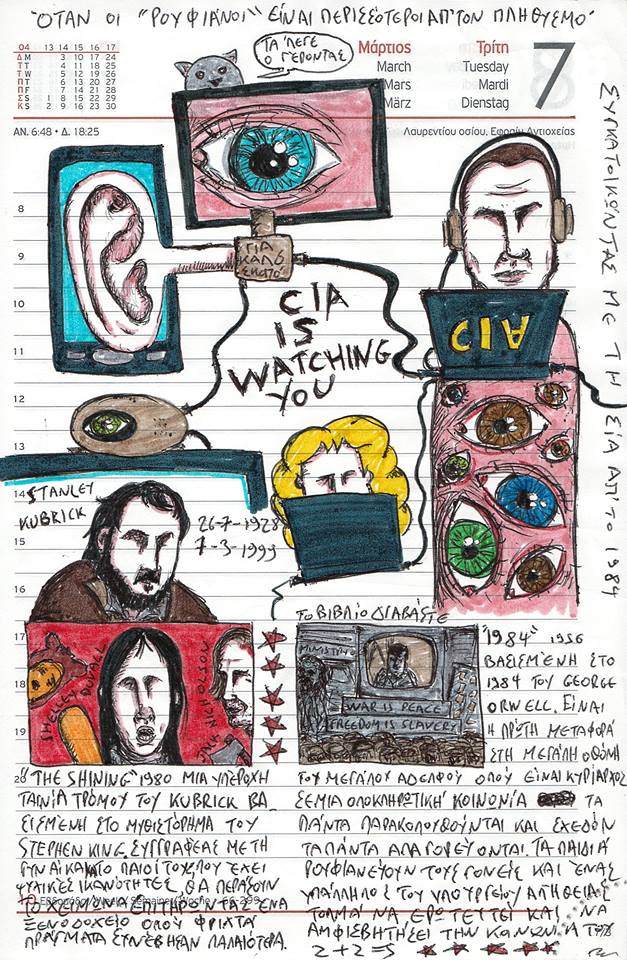 "ΌΤΑΝ ΟΙ "ΡΟΥΦΙΑΝΟΙ" ΕΙΝΑΙ ΠΕΡΙΣΣΟΤΕΡΟΙ ΑΠ'ΤΟΝ ΠΛΗΘΥΣΜΟ"
04 13 14 15 16 17
Δ M 3 10 17 24
Τ T 4 11 18 25
Τ W 5 12 19 26
Π T 6 13 20 27
Π F 7 14 21 28
Σ S 1 8 15 22 29
Κ S 2 9 16 23 30
ΤΑ 'ΛΕΓΕ
Ο ΓΕΡΟΝΤΑΣ
Μάρτιος Τρίτη
March Tuesday
Mars Mardi
März Dienstag
7
ΑΝ. 6:48 • Δ. 18:25
Λαυρεντίου οσίου, Εφραίμ Αντιοχείας
ΣΥΓΚΑΤΟΙΚΩΝΤΑΣ ΜΕ ΤΗ ΣΙΑ ΑΠ'ΤΟ 1984
8
9
10
11
12
13
14
15
16
17
18
19
20
ΓΙΑ
ΚΑΛΟ
ΣΚΟΠΟ
CIA
IS
WATCHING
YOU
CIA
STANLEY
KUBRICK
26-7-1928
7-3-1999
SHELLEY DUVALL
JACK NICHOLSON
ΤΟ ΒΙΒΛΙΟ ΔΙΑΒΑΣΤΕ
MINISTRY
WAR IS PEACE
FREEDOM IS SLAVERY
"1984" 1956
ΒΑΣΙΣΜΕΝΗ ΣΤΟ
1984 ΤΟΥ GEORGE
ORWELL. ΕΙΝΑΙ
Η ΠΡΩΤΗ ΜΕΤΑΦΟΡΑ
ΣΤΗ ΜΕΓΑΛΗ ΟΘΟΝΗ
ΤΟΥ ΜΕΓΑΛΟΥ ΑΔΕΛΦΟΥ ΟΠΟΥ ΕΙΝΑΙ ΚΥΡΙΑΡΧΟΣ
ΣΕ ΜΙΑ ΟΛΟΚΛΗΡΩΤΙΚΗ ΚΟΙΝΩΝΙΑ ΤΑ
ΠΑΝΤΑ ΠΑΡΑΚΟΛΟΥΘΟΥΝΤΑΙ ΚΑΙ ΣΧΕΔΟΝ
ΤΑ ΠΑΝΤΑ ΑΠΑΓΟΡΕΥΟΝΤΑΙ. ΤΑ ΠΑΙΔΙΑ
ΡΟΥΦΙΑΝΕΥΟΥΝ ΤΟΥΣ ΓΟΝΕΙΣ ΚΑΙ ΕΝΑΣ
ΥΠΑΛΛΗΛΟΣ ΤΟΥ ΥΠΟΥΡΓΕΙΟΥ ΑΛΗΘΕΙΑΣ
ΤΟΛΜΑ ΝΑ ΕΡΩΤΕΥΤΕΙ ΚΑΙ ΝΑ
ΑΜΦΙΣΒΗΤΗΣΕΙ ΤΗΝ ΚΑΝΩΝΙΑ ΤΟΥ
2+2=5
"THE SHINING" 1980 ΜΙΑ ΥΠΕΡΟΧΗ
ΤΑΙΝΙΑ ΤΡΟΜΟΥ ΤΟΥ KUBRICK ΒΑ-
ΣΙΣΜΕΝΗ ΣΤΟ ΜΥΘΙΣΤΟΡΗΜΑ ΤΟΥ
STEPHEN KING. ΣΥΓΓΡΑΦΕΑΣ ΜΕ ΤΗ
ΓΥΝΑΙΚΑ ΚΑΙ ΤΟ ΠΑΙΔΙ ΤΟΥ ΠΟΥ ΈΧΕΙ
ΨΥΧΙΚΕΣ ΙΚΑΝΟΤΗΤΕΣ, ΘΑ ΠΕΡΑΣΟΥΝ
ΤΟ ΧΕΙΜΩΝΑ ΕΠΙΤΗΡΩΝΤΑΣ ΕΝΑ
ΞΕΝΟΔΟΧΕΙΟ ΟΠΟΥ ΦΡΙΧΤΑ
ΠΡΑΓΜΑΤΑ ΣΥΝΕΒΗΣΑΝ ΠΑΛΑΙΟΤΕΡΑ.
66-299